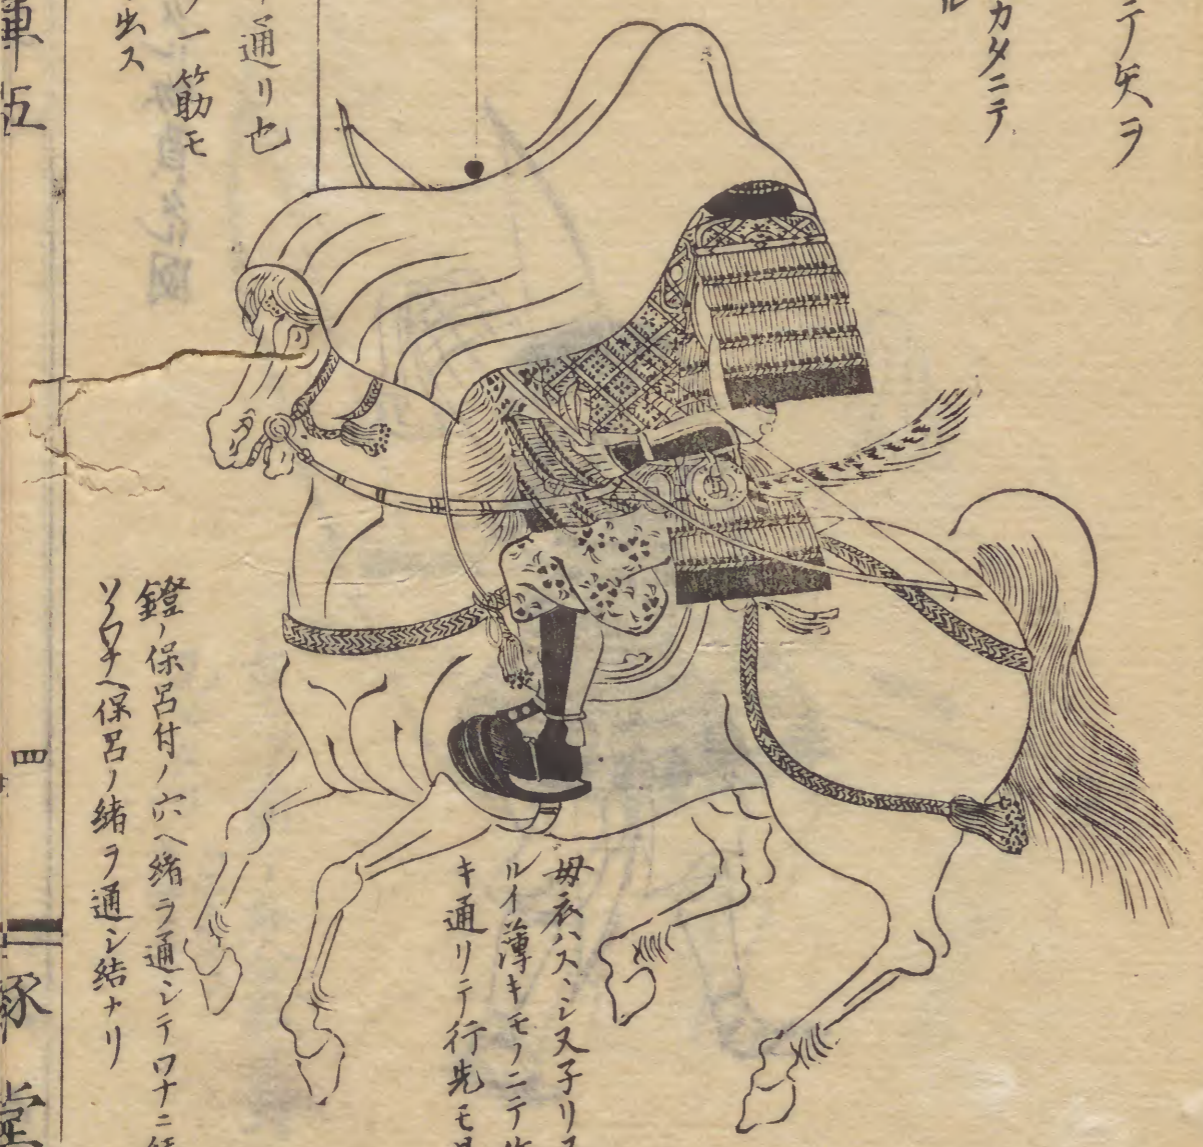 テ矢ヲ
カタニテ
ル
通リ也
一筋モ
出ス
母衣ハスヽシ又子リ
ルイ薄キモノニテ
キ通リテ行先モ
鐙ノ保呂付ノ穴ヘ緒ヲ通シテワナニ
ソノワナヘ保呂ノ緒ヲ通シ結ナリ
軍五
四